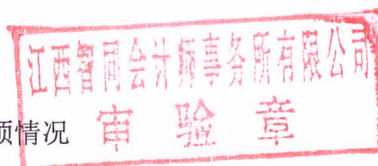 江西智同会计师事务所有限公司
审验章
情况